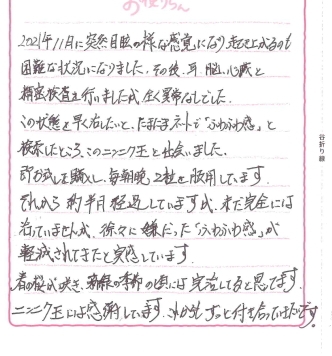 お便りらん
2021年11月に突然目眩の様な感覚になり走り上がるのも
困難な状況になりました。その後、耳、脳、心臓と
精密検査を行いましたが、全く異常なしでした。
この状態を早く治したいと、たまたまネットで「ふわふわ感」と
検索したところ、このニンニク玉と出会いました。
即お試しを購入し、毎朝晩2粒を服用しています。
それから約半月経過していますが、未だ完全には
治っていませんが、徐々に嫌だった「ふわふわ感」が
軽減されてきたと実感しています。
春桜が咲き、新緑の季節の頃には完治してると思てます。
ニンニク玉には感謝しています。これからもずっと付き合っていきたいです。
谷折り線